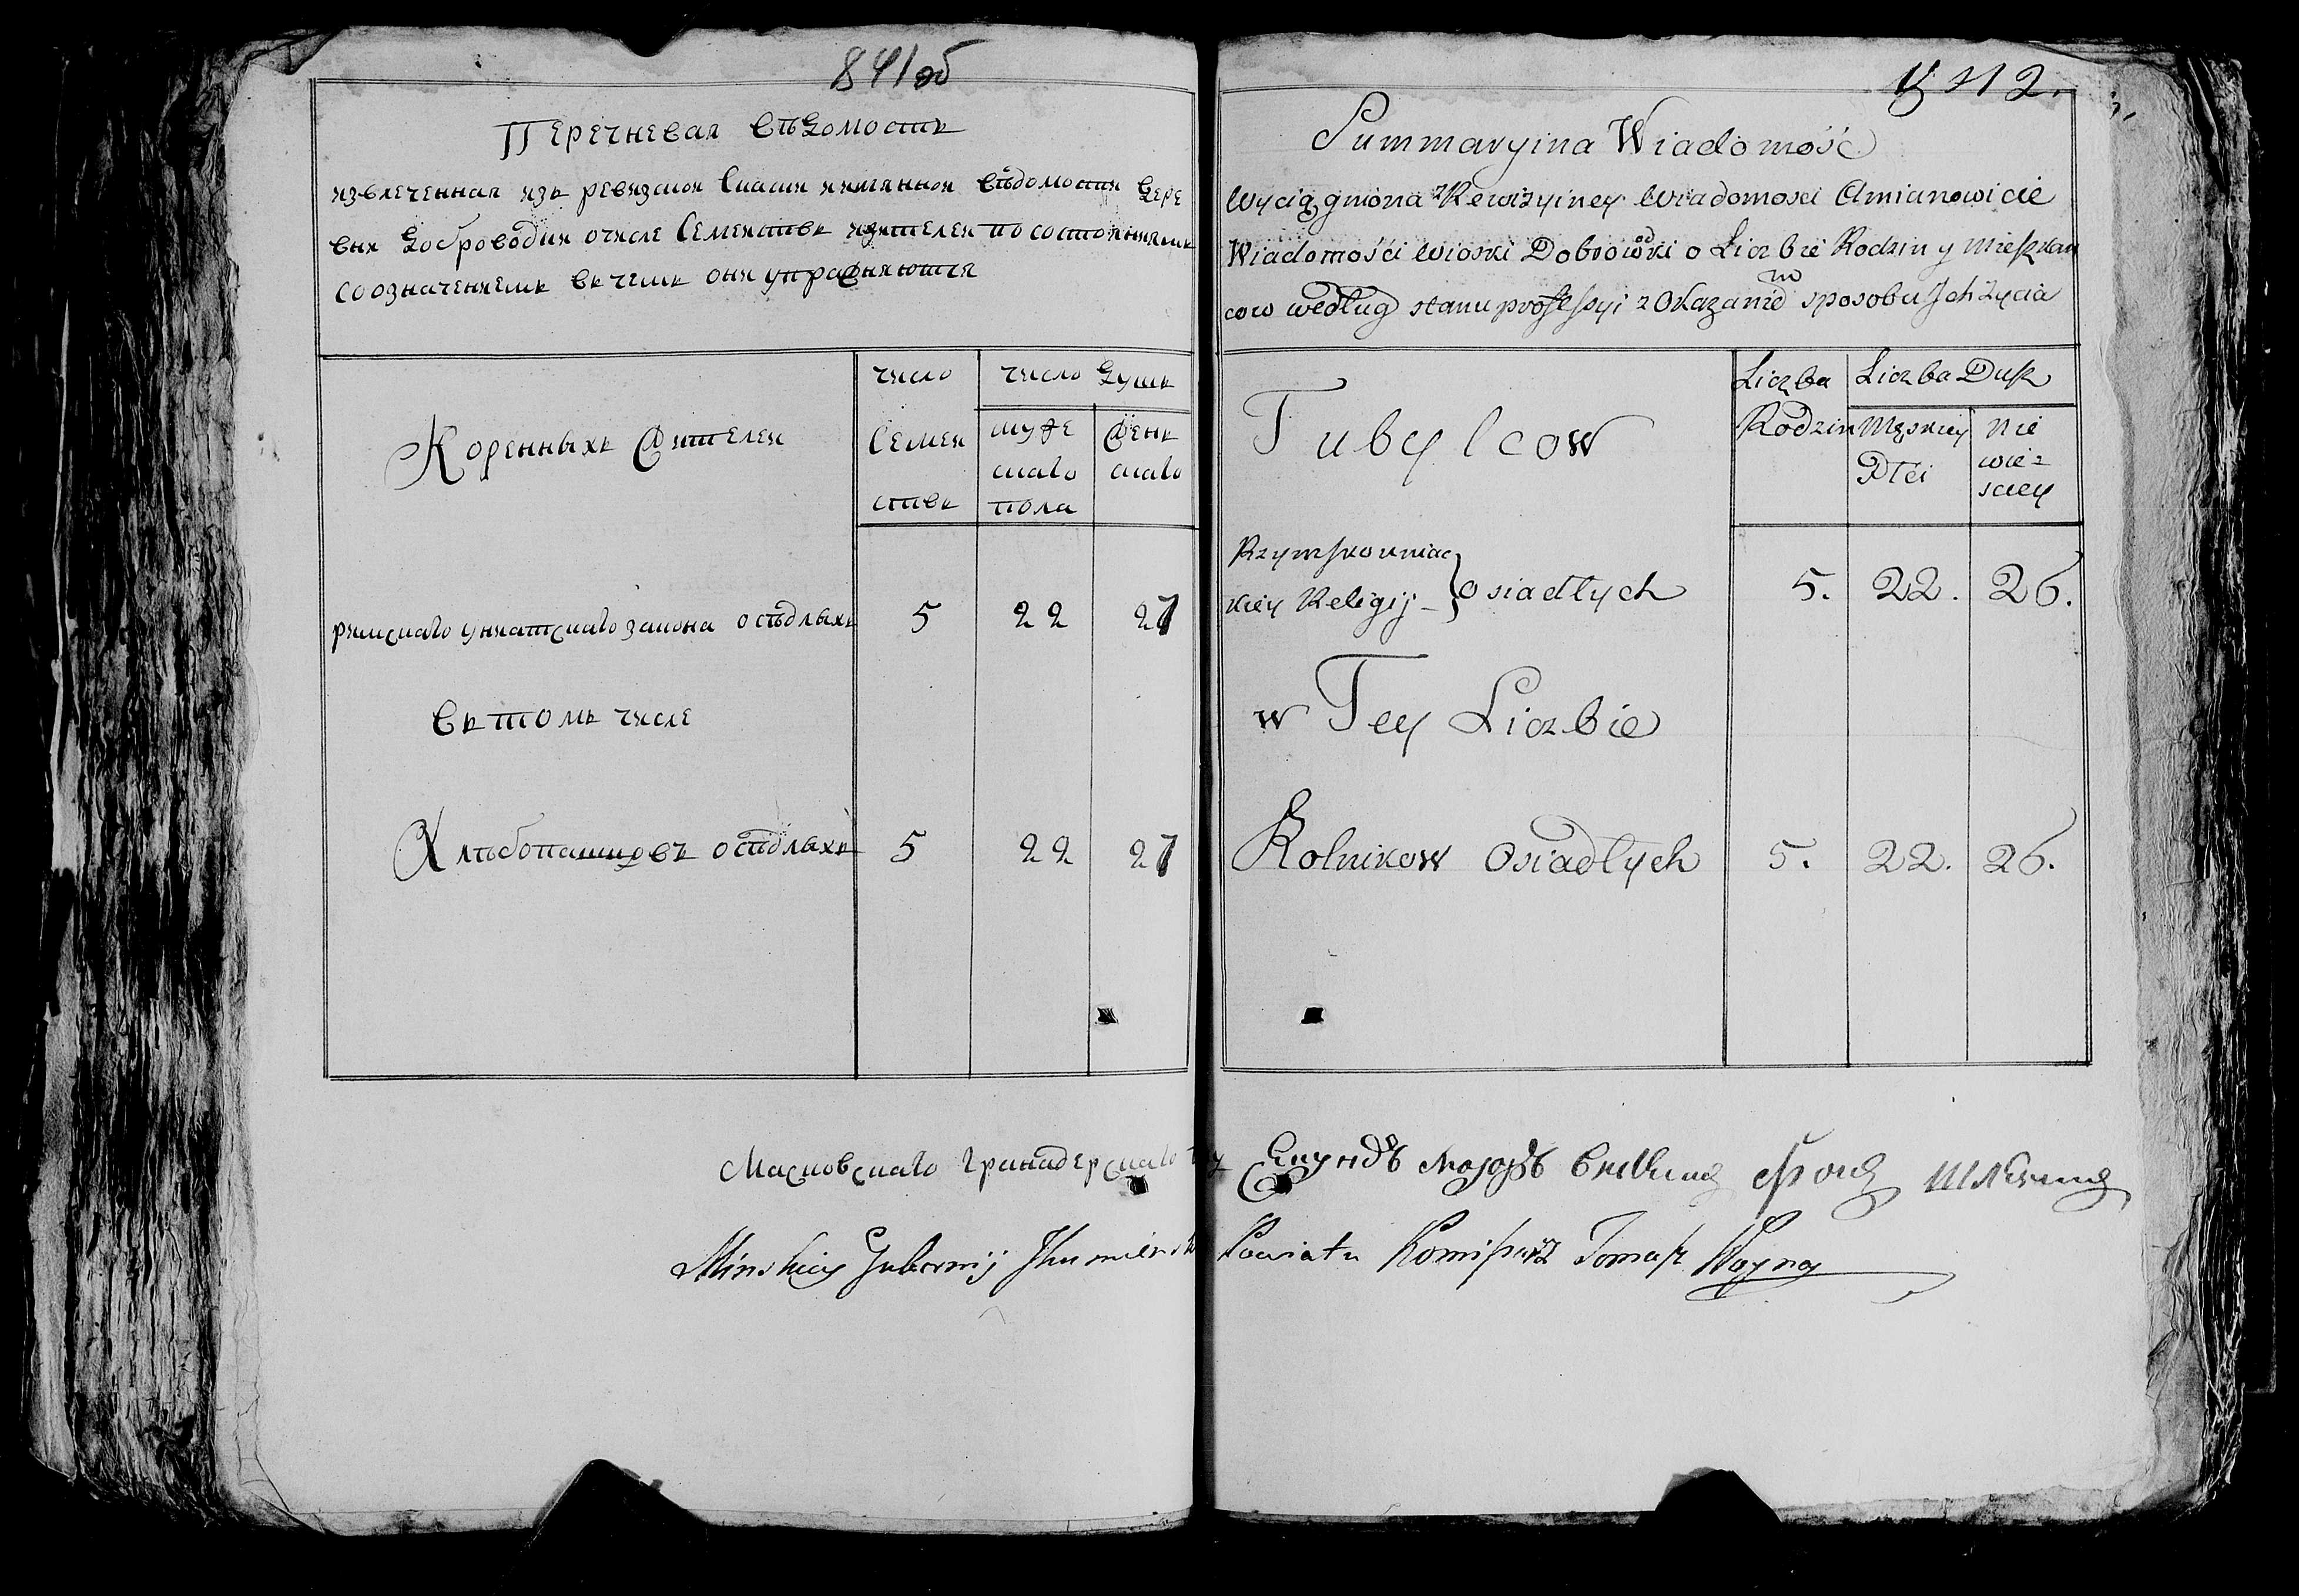 841об
Перечневая вѣдомость
извлеченная изъ ревизской сказки имянной вѣдомости дере
вни Доброводки очисле Семействъ ижителей по состояниямъ
созначениемъ въ чемъ они упражняются
Коренныхъ жителей
число
Семей
ствъ
число Душъ
муже
скаго
пола
женс
скаго
римскаго униатскаго закона осѣдлыхъ 5 22 27
въ томъ числе
Хлѣбопашцовъ осѣдлыхъ 5 22 27
842.
Summaryina Wiadomość
Wyciągniona z Rewizyiney Wiadomosci Amianowicie
Wiadomości wioski Dobrowodki o Liczbie Rodzin y Mieszkan
cow według stanu professyi z Okazaniem sposobu Jch życia
Tubylcow
Liczba
Rodzin
Liczba Dusz
Męskiey
Płci
Nie
wie-
sciey
Rzymskouniac
kiey Religij } osiadłych 5. 22. 26.
w Tey Liczbie
Rolnikow Osiadłych 5. 22. 26.
Масковскаго гранадерскаго Секундъ Маіоръ
Minskiey Gubernij Jhumiensk Powiatu Komissarz Tomasz Woyna